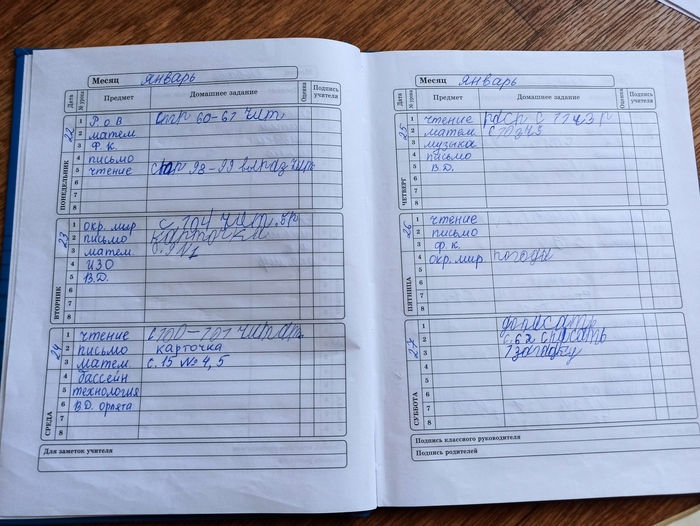 Месяц январь
Дата № урока Предмет Домашнее задание Оценка Подпись учителя
ПОНЕДЕЛЬНИК 22
1 РОВ стр 60-61 чит
2 матем
3 Ф.К.
4 письмо
5 чтение стр 98-99 выраз чит
6
7
8
ВТОРНИК 23
1 окр. мир с 104 чит.
2 письмо карточки
3 матем. №1
4 ИЗО
5 В.Д.
6
7
8
СРЕДА 24
1 чтение с 100-101 читать
2 письмо карточка
3 матем. с. 15 № 4,5
4 бассейн
5 технология
6 В.Д. орлята
7
8
Для заметок учителя
Месяц январь
Дата № урока Предмет Домашнее задание Оценка Подпись учителя
ЧЕТВЕРГ 25
1 чтение
2 матем
3 музыка
4 письмо
5 В.Д.
6
7
8
ПЯТНИЦА 26
1 чтение
2 письмо
3 ф.к.
4 окр. мир погода
5
6
7
8
СУББОТА 27
1 дописать
2 с. 62 списать
3 1 загадку
4
5
6
7
8
Подпись классного руководителя
Подпись родителей